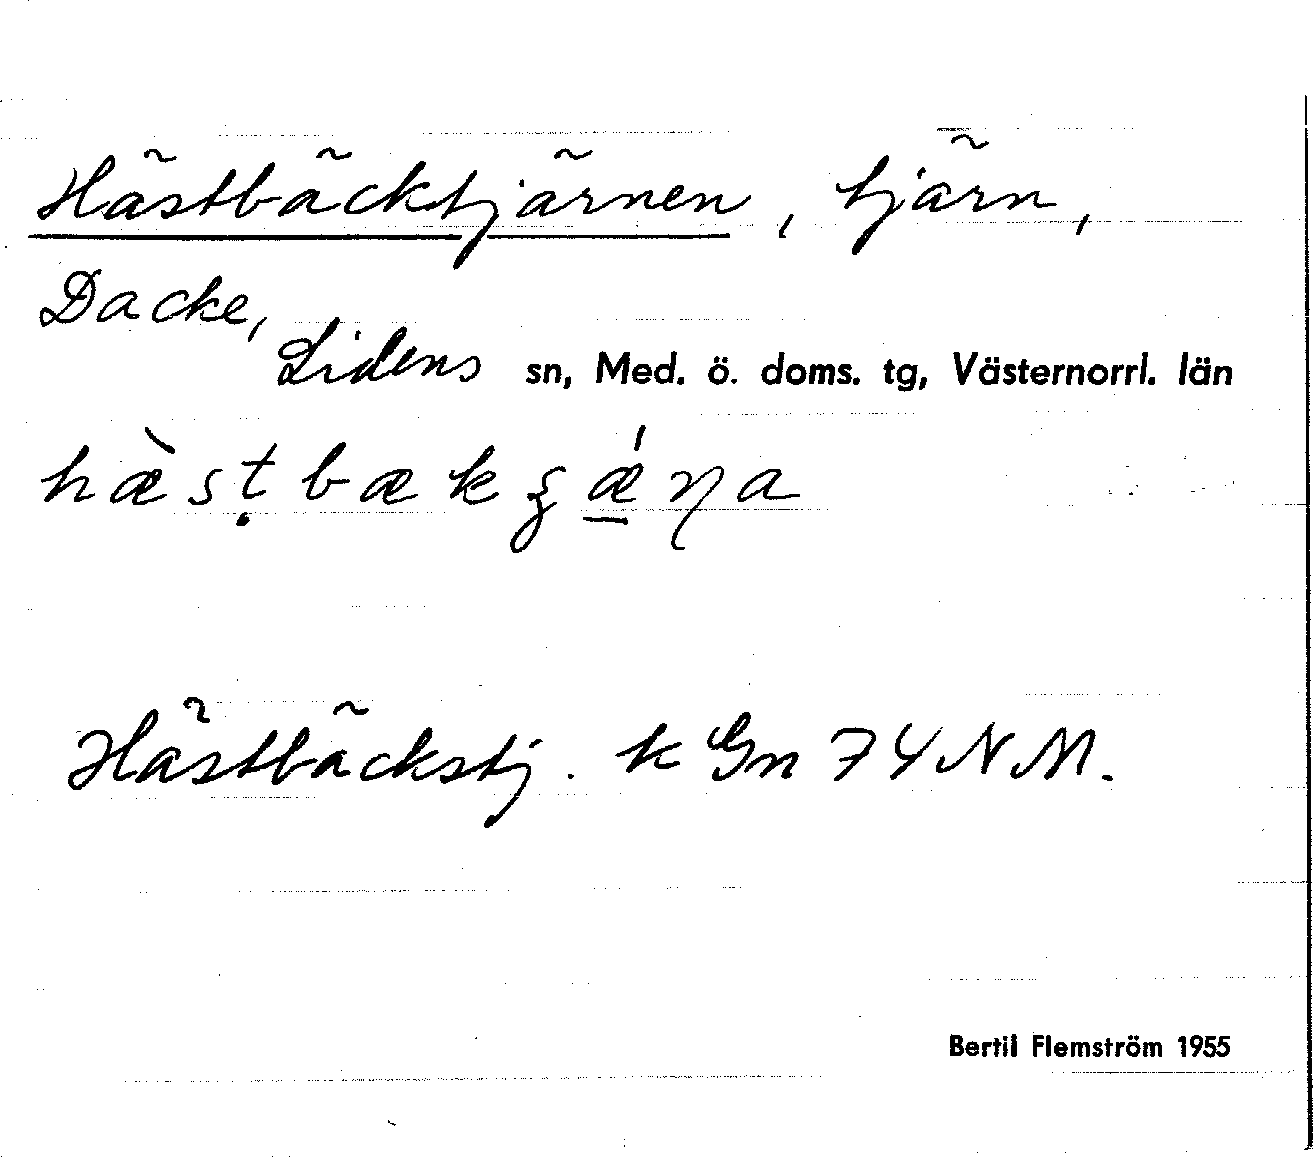 Hästbäcktjärnen, tjärn,
Dacke,
Lidens sn, Med. ö. doms. tg, Västernorrl. län
hæ̀sṭbækʂǽ̠ɳa
Hästbäckstj. k Gn 74 NM.
Bertil Flemström 1955